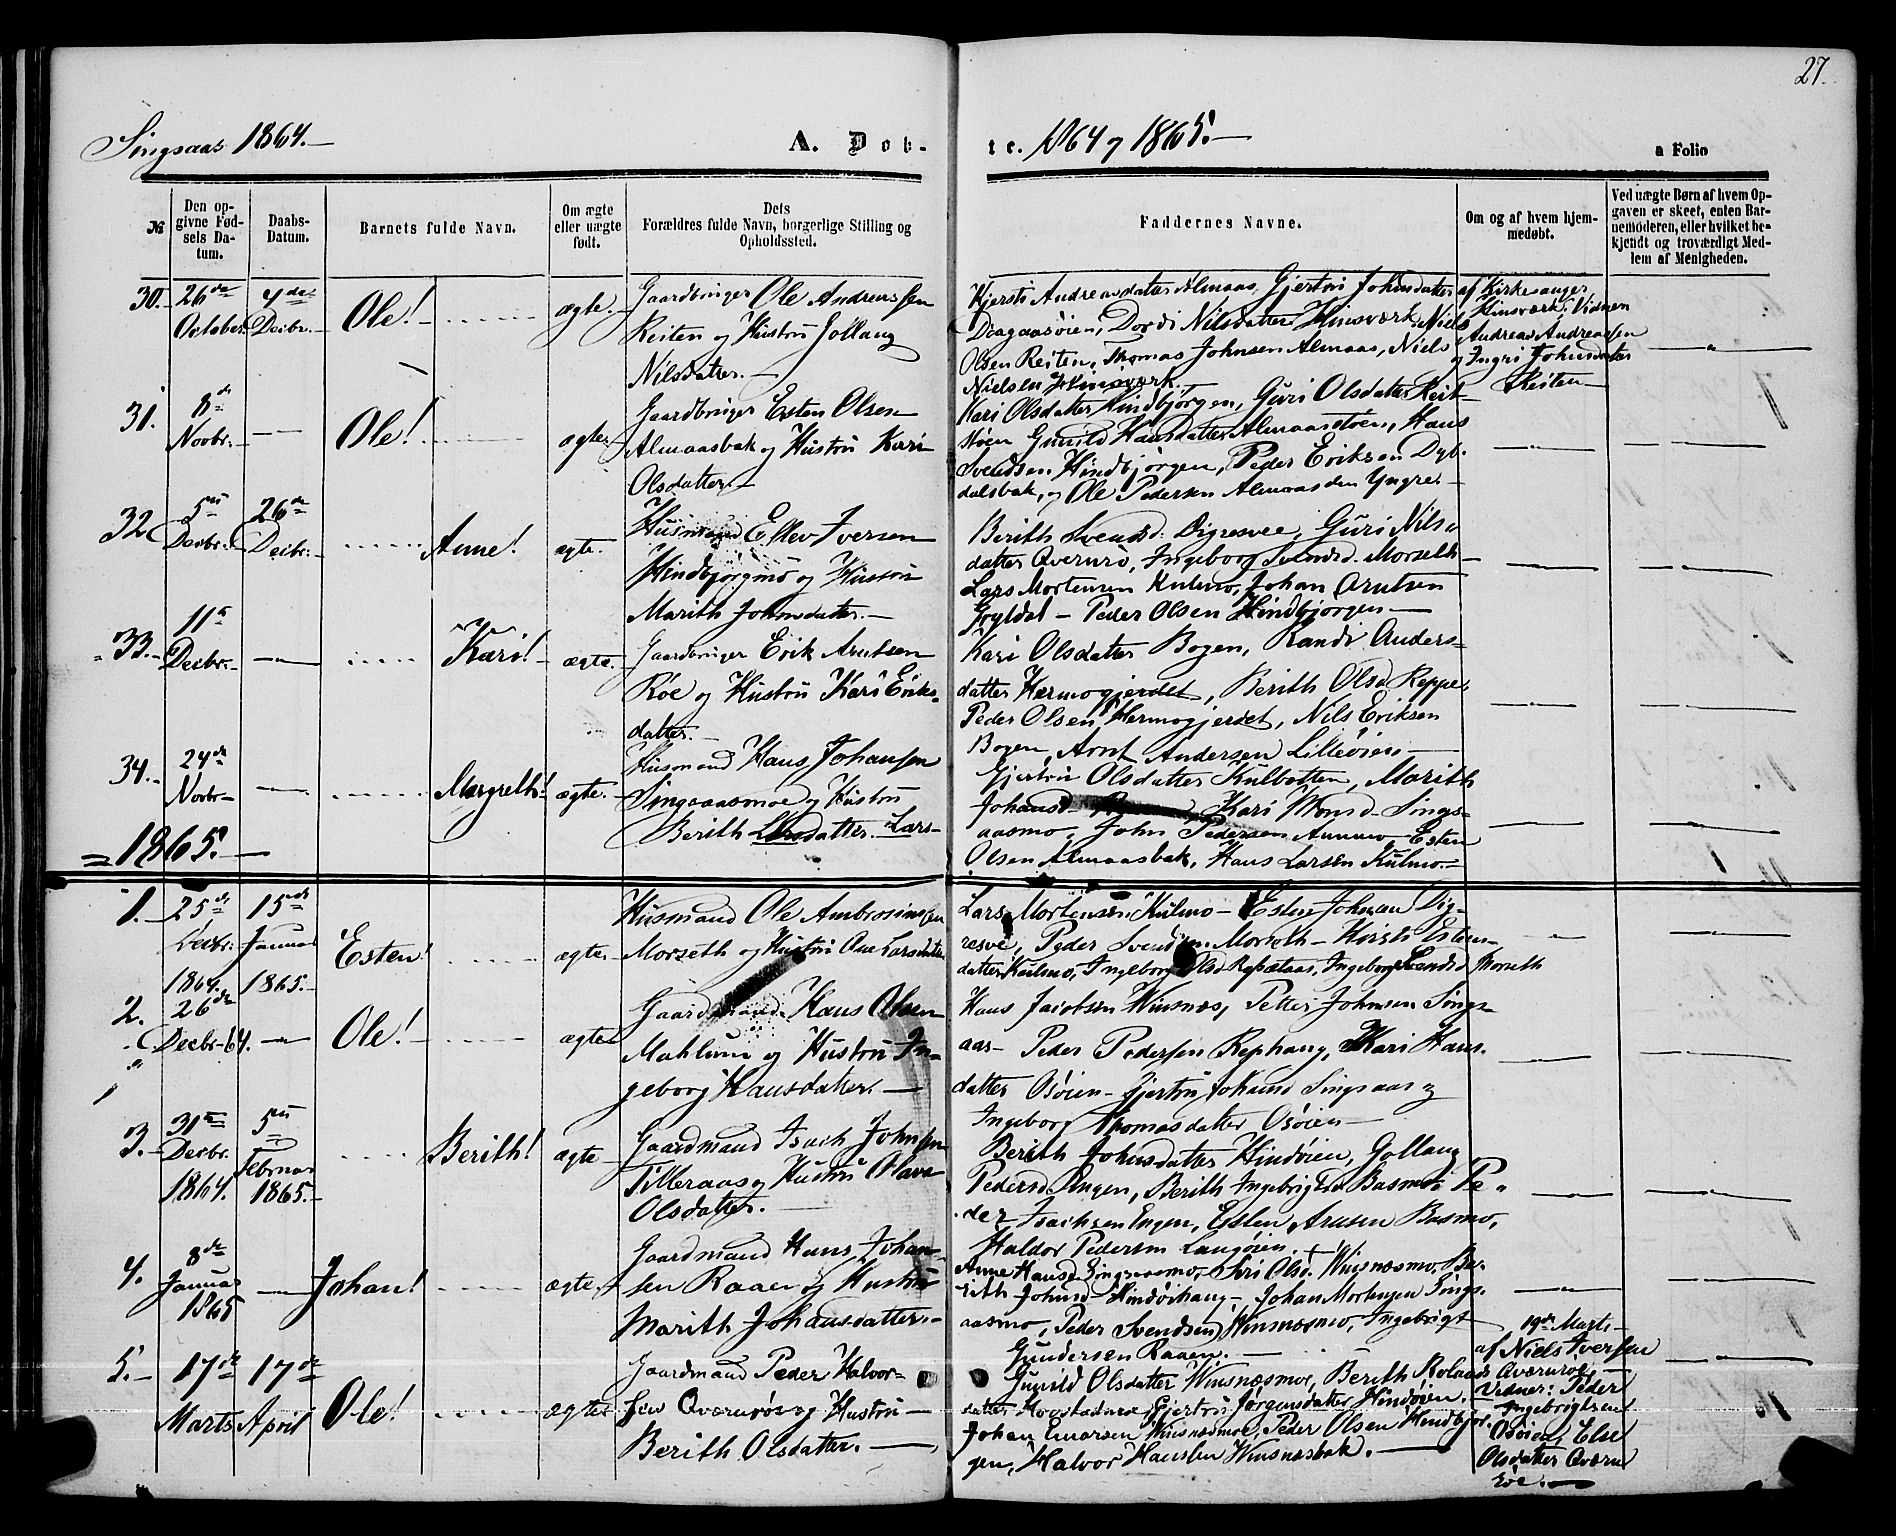 27.
Singsaas 1864.—
A. Dob-
te. 1864 og 1865.—
a Folio
№
Den op-
givne Fød-
sels Da-
tum.
Daabs-
Datum.
Barnets fulde Navn.
Om ægte
eller uægte
født.
Dets
Forældres fulde Navn, borgerlige Stilling og
Opholdssted.
Faddernes Navne.
Om og af hvem hjem-
medøbt.
Ved uægte Børn af hvem Op-
gaven er skeet, enten Bar-
nemoderen, eller hvilket be-
kjendt og troværdigt Med-
lem af Menigheden.
30.— 26de October. 4de Decbr.— Ole! ægte.—
Gaardbruger Ole Andreassen
Reiten og Hustru Gollaug
Nilsdatter.—
Kjersti Andreasdatter Almaas, Gjertru Johnsdatter
Dragaasøien, Dordi Nilsdatter Hinsværk, Niels
Olsen Reiten, Thomas Johnsen Almaas, Niels
Nielsen Hinsværk.
af Kirkesanger
Hinsværk. Vidner
Andreas Andreassen
og Ingri Johnsdatter
Reiten—
31. 8de Novbr.— Ole! ægte.—
Gaardbruger Esten Olsen
Almaasbak og Hustru Kari
Olsdatter.—
Kari Olsdatter Hindbjørgen, Guri Olsdatter Reit-
støen Gunild Hansdatter Almaasstøen, Hans
Svendsen Hindbjørgen, Peder Eriksen Dyb-
dalsbak, og Ole Pedersen Almaas den Yngre.—
32 5te Decbr. 26de Decbr.— Anne! ægte.
Husmand Ellev Iversen
Hindbjørgmo og Hustru
Marith Johnsdatter.—
Berith Svendsd. Digresvee, Guri Nils-
datter Qværnrø, Ingeborg Svendsd. Morseth—
Lars Mortensen Kulmo, Johan Arntsen
Forgldal— Peder Olsen Hindbjørgen—
33.— 11te Decbr.— Kari!— ægte.
Gaardbruger Erik Arntsen
Røe og Hustru Kari Eriks-
datter.—
Kari Olsdatter Bogen, Randi Anders-
datter Hermogjerdet, Berith Olsd Reppe,
Peder Olsen Hermogjerdet, Nils Eriksen
Bogen, Arnt Andersen Lilleøien—
34.— 24de Novbr— Margreth! ægte.—
Husmand Hans Johansen
Singsaasmoe og Hustru
Berith Larsdatter. Lars-
Gjertru Olsdatter Kulbotten, Marith
Johansd. Kari Monsd Sings-
aasmo, John Pedersen Aunmo Esten
Olsen Almaasbak, Hans Larsen Kulmo.—
= 1865.—
1.— 25de Decbr. 1864. 15de Januar 1865.— Esten! ægte
Husmand Ole Ambrosiussen
Morseth og Hustru Ane Larsdatter
Lars Mortensen Kulmo— Esten Johnsen Dig-
resve, Peder Svendsen Morseth— Kirsti Esten-
datter Kulmo, Ingeborg Olsd Ingeborg Svendsd Morseth
2. 26de Decbr. 64. Ole! ægte
Gaardmand Hans Olsen
Mahlum og Hustru In-
geborg Hansdatter.—
Hans Jacobsen Winsnæs, Petter Johnsen Sings-
aas— Peder Pedersen Rephaug, Kari Hans-
datter Osøien— Gjertru Johansd Singsaas og
Ingeborg Thomasdatter Osøien—
3.— 31te Decbr. 1864. 5te Februar 1865.— Berith! ægte
Gaardmand Isach Johnsen
Tilleraas og Hustru Olava
Olsdatter.—
Berith Johnsdatter Hindøien, Gollaug
Pedersd Engen, Berith Ingebrigtsd Basmo Pe-
der Isachsen Engen, Esten Arnsen Basmo,
Haldor Pedersen Langøien.
4. 8de Januar 1865 Johan! ægte.
Gaardmand Hans Johan-
sen Raaen og Hustru
Marith Johansdatter.—
Anne Hansd Singsaasmo, Siri Olsd. Winsnæsmo, Be-
rith Johnsd Hindørhaug— Johan Mortensen Sings-
aasmo, Peder Svendsen Winsnæsmo, Ingebrigt
Gundersen Raaen.—
5.— 17de Marts 17de April Ole! ægte
Gaardmand Peder Halvor-
sen Qværnrøe og Hustru—
Berith Olsdatter.—
Gunild Olsdatter Winsnæsmoe, Berith Rolands
datter Hovstadmo Gjertru Jørgensdatter Hindøien.
Johan Enarsen Winsnæsmoe, Peder Olsen Hindbjør-
gen, Halvor Hansen Winsnæsbak.—
19de Marts
af Niels Iversen
Qværnroe,—
Vidner: Peder
Ingebrigtsen
Osøien, Else
Olsdatter Qværn
røe.—